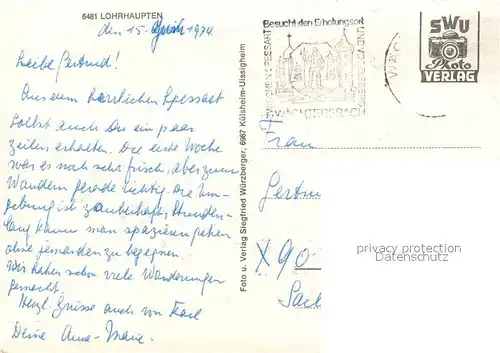 6461 LOHRHAUPTEN
den 15. 1974
Liebe Gertrud!
Aus dem herrlichen Spessart
sollst auch Du ein paar
Zeilen erhalten. Die erste Woche
war es noch sehr frisch, aber zum
Wandern gerade richtig. Die Um-
gebung ist zauberhaft, Stunden-
lang kann man spazieren gehen
ohne jemanden zu begegnen.
Wir haben schon viele Wanderungen
gemacht.
Herzl. Grüsse auch von Karl
Deine Anne-Marie.
Foto u. Verlag Siegfried Würzberger, 6967 Külsheim-Uissigheim
Besucht den Erholungsort
SWU
Photo
VERLAG
Frau
Gertru
X90
privacy protection
Datenschutz